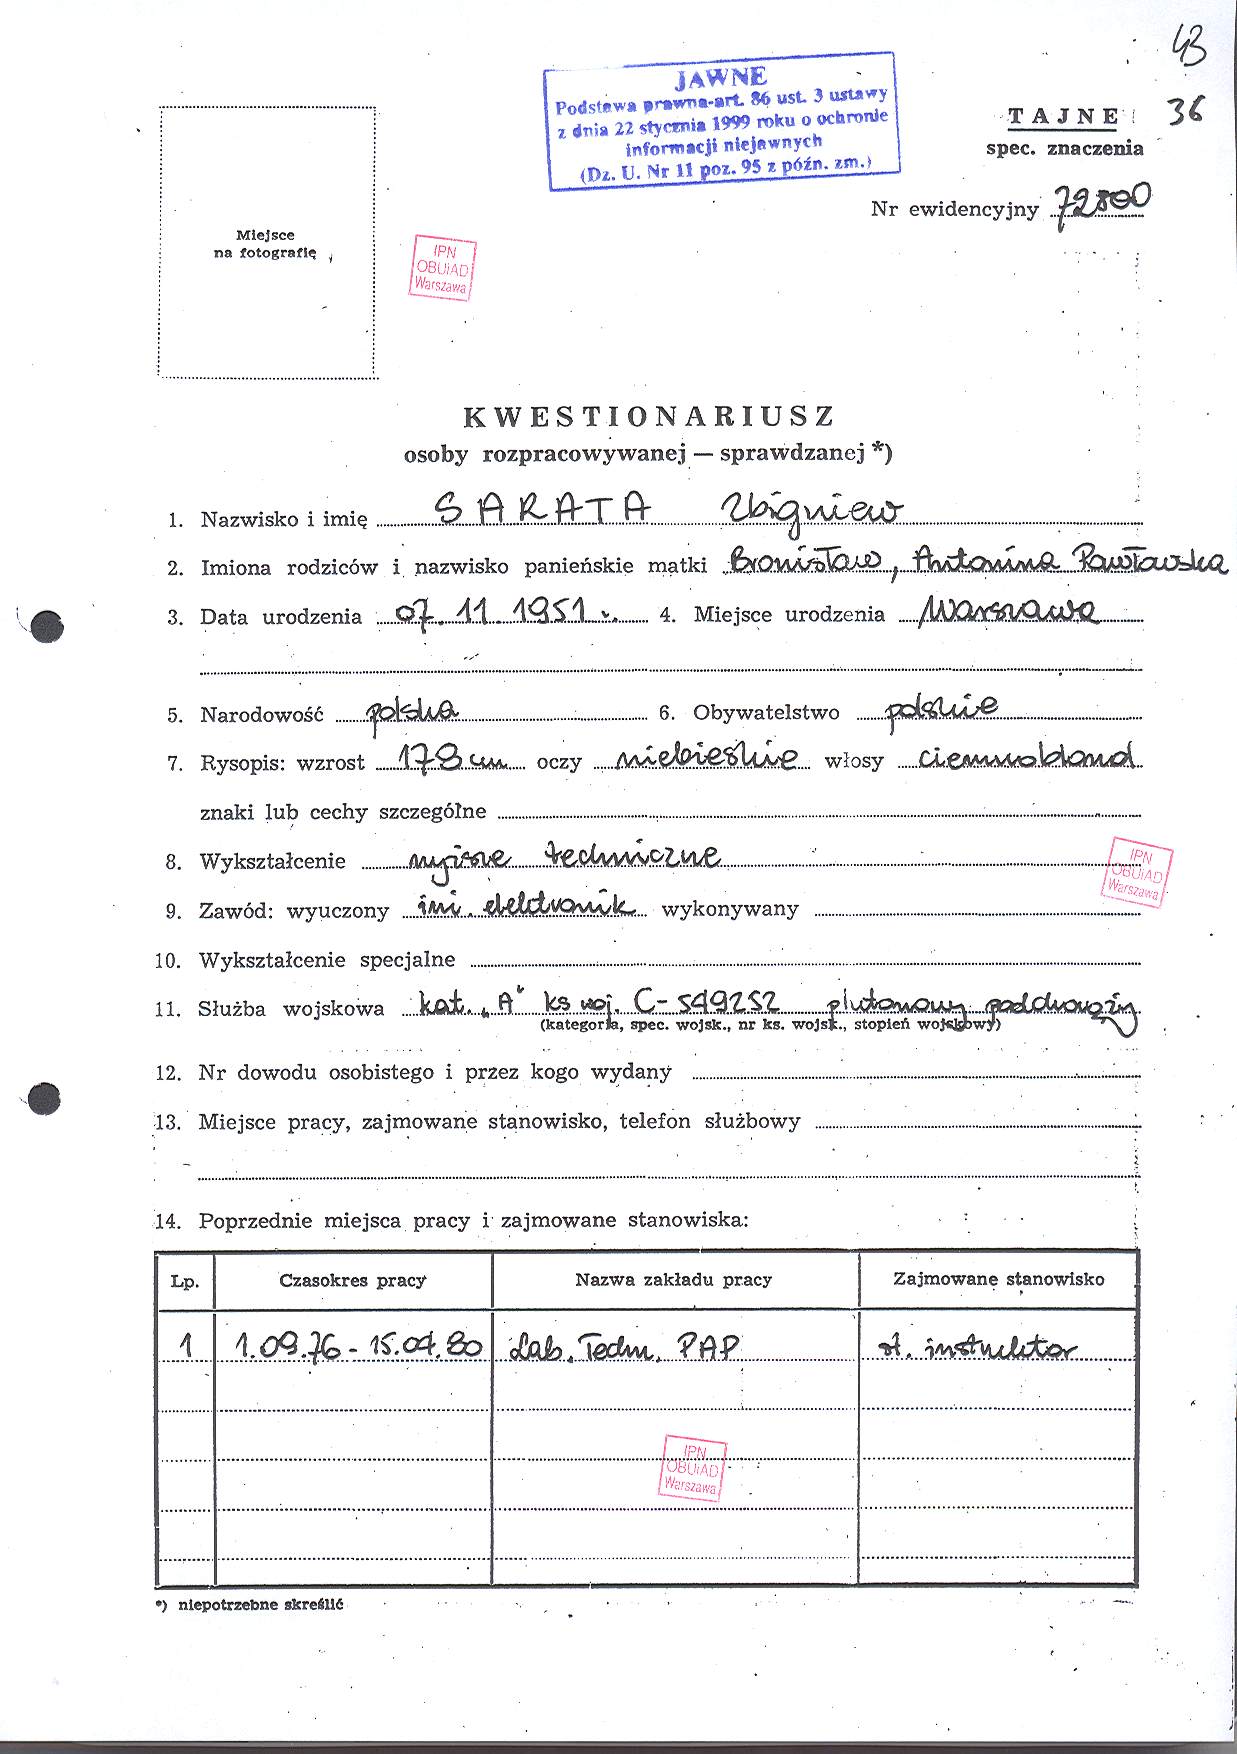 43
JAWNE
Podstawa prawna-art. 86 ust. 3 ustawy
z dnia 22 stycznia 1999 roku o ochronie
informacji niejawnych
(Dz. U. Nr 11 poz. 95 z późn. zm.)
TAJNE 36
spec. znaczenia
Nr ewidencyjny 72800
Miejsce
na fotografię
IPN
OBUiAD
Warszawa
KWESTIONARIUSZ
osoby rozpracowywanej — sprawdzanej *)
1. Nazwisko i imię SARATA Zbigniew
2. Imiona rodziców i nazwisko panieńskie matki Bronisław, Antonina Pawłowska
3. Data urodzenia 07.11.1951 r. 4. Miejsce urodzenia Warszawa
5. Narodowość polska 6. Obywatelstwo polskie
7. Rysopis: wzrost 178 cm oczy niebieskie włosy ciemnoblond
znaki lub cechy szczególne
8. Wykształcenie wyższe techniczne
IPN
OBUiAD
Warszawa
9. Zawód: wyuczony inż. elektronik wykonywany
10. Wykształcenie specjalne
11. Służba wojskowa kat. „A" ks woj. C-549252 plutonowy podchorąży
(kategoria, spec. wojsk., nr ks. wojsk., stopień wojskowy)
12. Nr dowodu osobistego i przez kogo wydany
13. Miejsce pracy, zajmowane stanowisko, telefon służbowy
14. Poprzednie miejsca pracy i zajmowane stanowiska:
Lp. Czasokres pracy Nazwa zakładu pracy Zajmowane stanowisko
1 1.09.76 - 15.04.80 Lab. Techn. PAP st. instruktor
IPN
OBUiAD
Warszawa
*) niepotrzebne skreślić